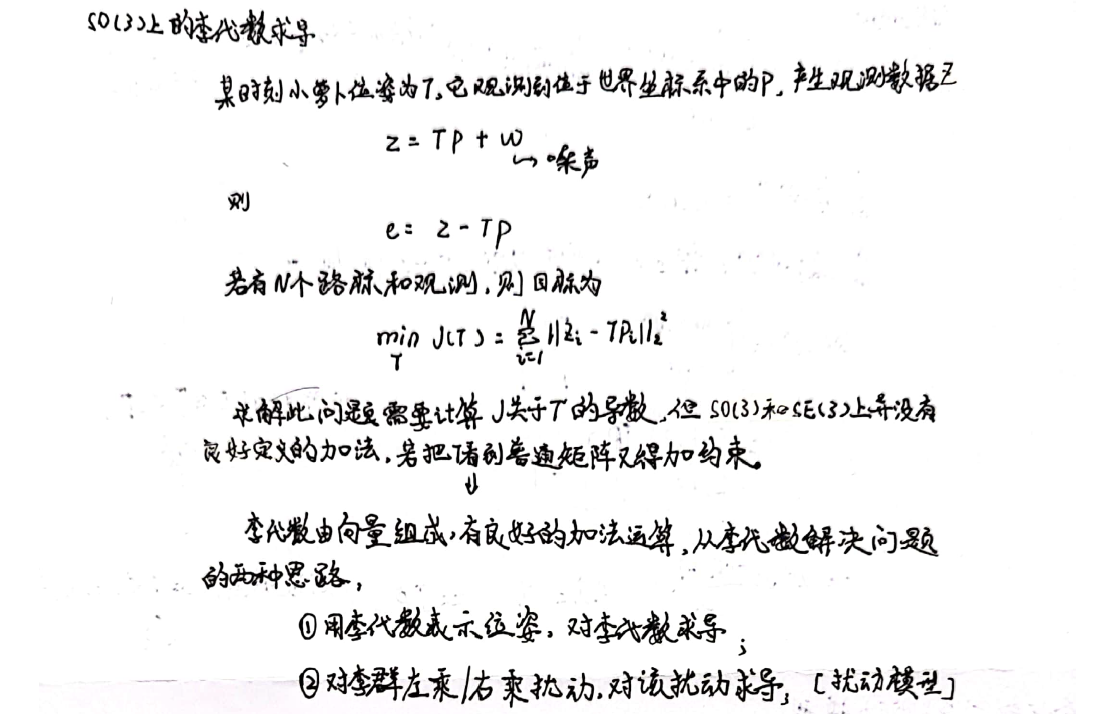 SO(3)上的李代数求导
某时刻小萝卜位姿为T,它观测到位于世界坐标系中的P,产生观测数据Z
z = TP + w
↳ 噪声
则
e = z - TP
若有N个路标和观测,则目标为
min_T J(T) = ∑_{i=1}^{N} ||z_i - TP_i||_2^2
求解此问题需要计算J关于T的导数,但SO(3)和SE(3)上并没有
良好定义的加法,若把T看到普通矩阵又得加约束。
↓
李代数由向量组成,有良好的加法运算,从李代数解决问题
的两种思路,
①用李代数表示位姿,对李代数求导;
②对李群左乘/右乘扰动,对该扰动求导;[扰动模型]